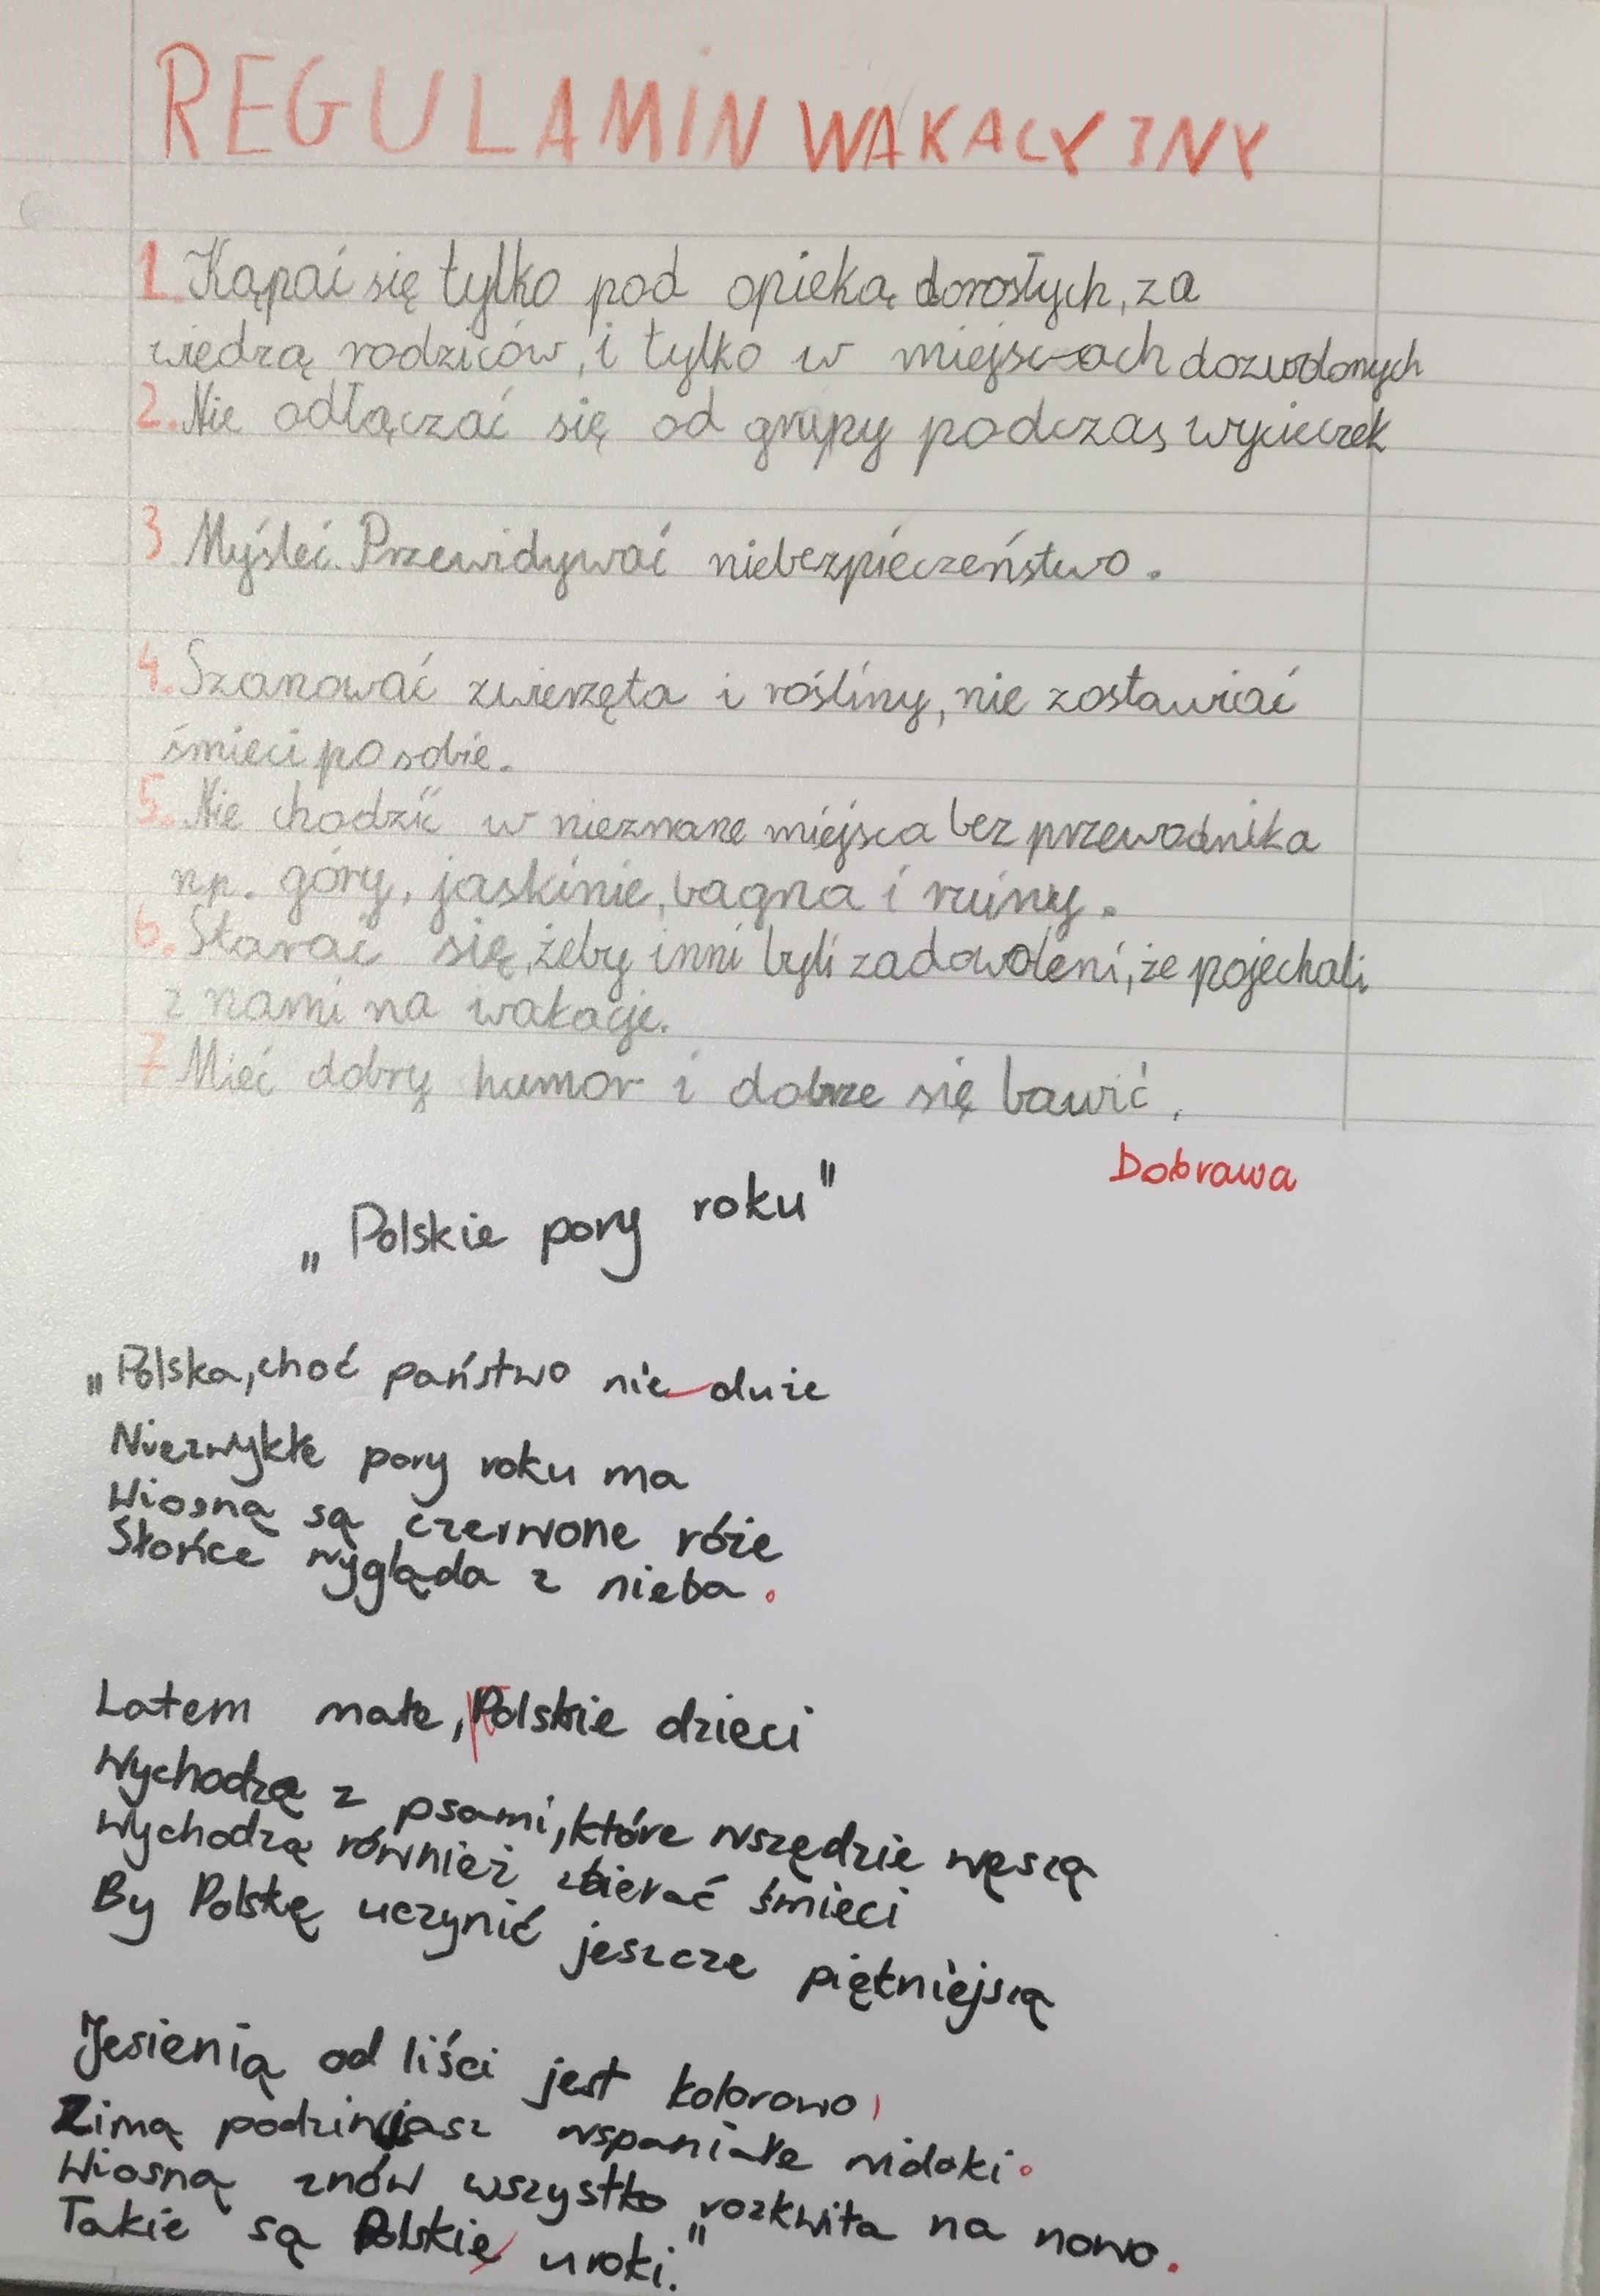 REGULAMIN WAKACYJNY
1. Kąpać się tylko pod opieką dorosłych, za
wiedzą rodziców, i tylko w miejscach dozwolonych
2. Nie odłączać się od grupy podczas wycieczek
3. Myśleć. Przewidywać niebezpieczeństwo.
4. Szanować zwierzęta i rośliny, nie zostawiać
śmieci po sobie.
5. Nie chodzić w nieznane miejsca bez przewodnika
np. góry, jaskinie, bagna i ruiny.
6. Starać się, żeby inni byli zadowoleni, że pojechali
z nami na wakacje.
7 Mieć dobry humor i dobrze się bawić.
Dobrawa
„Polskie pory roku"
„Polska, choć państwo nie duże
Niezwykłe pory roku ma
Wiosną są czerwone róże
Słońce wygląda z nieba.
Latem małe, Polskie dzieci
Wychodzą z psami, które wszędzie węszą
Wychodzą również zbierać śmieci
By Polskę uczynić jeszcze piękniejszą
Jesienią od liści jest kolorowo,
Zimą podziwiasz wspaniałe widoki.
Wiosną znów wszystko rozkwita na nowo.
Takie są Polskie uroki."